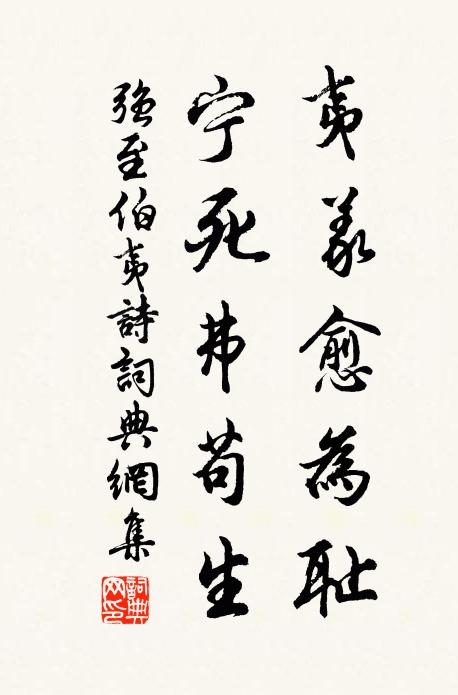 夷義愈為耻
宁死弗苟生
强至伯夷詩詞典網集
詞典網印